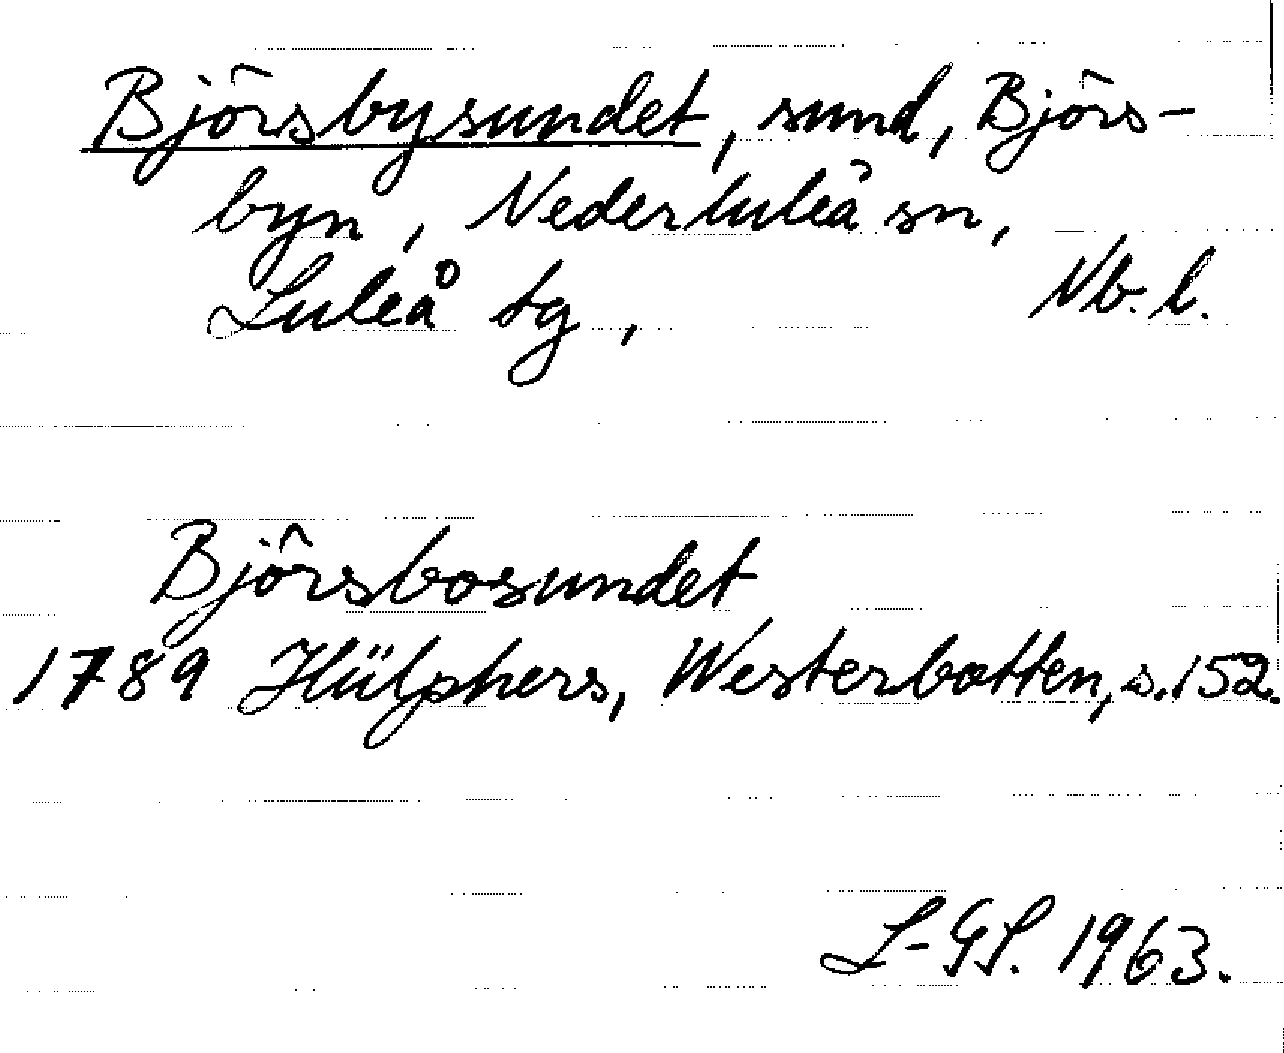 Björsbysundet, sund, Björs-
byn, Nederluleå sn,
Luleå tg, Nb. l.
Björsbosundet
1789 Hülphers, Westerbotten, s. 152.
L-GL. 1963.